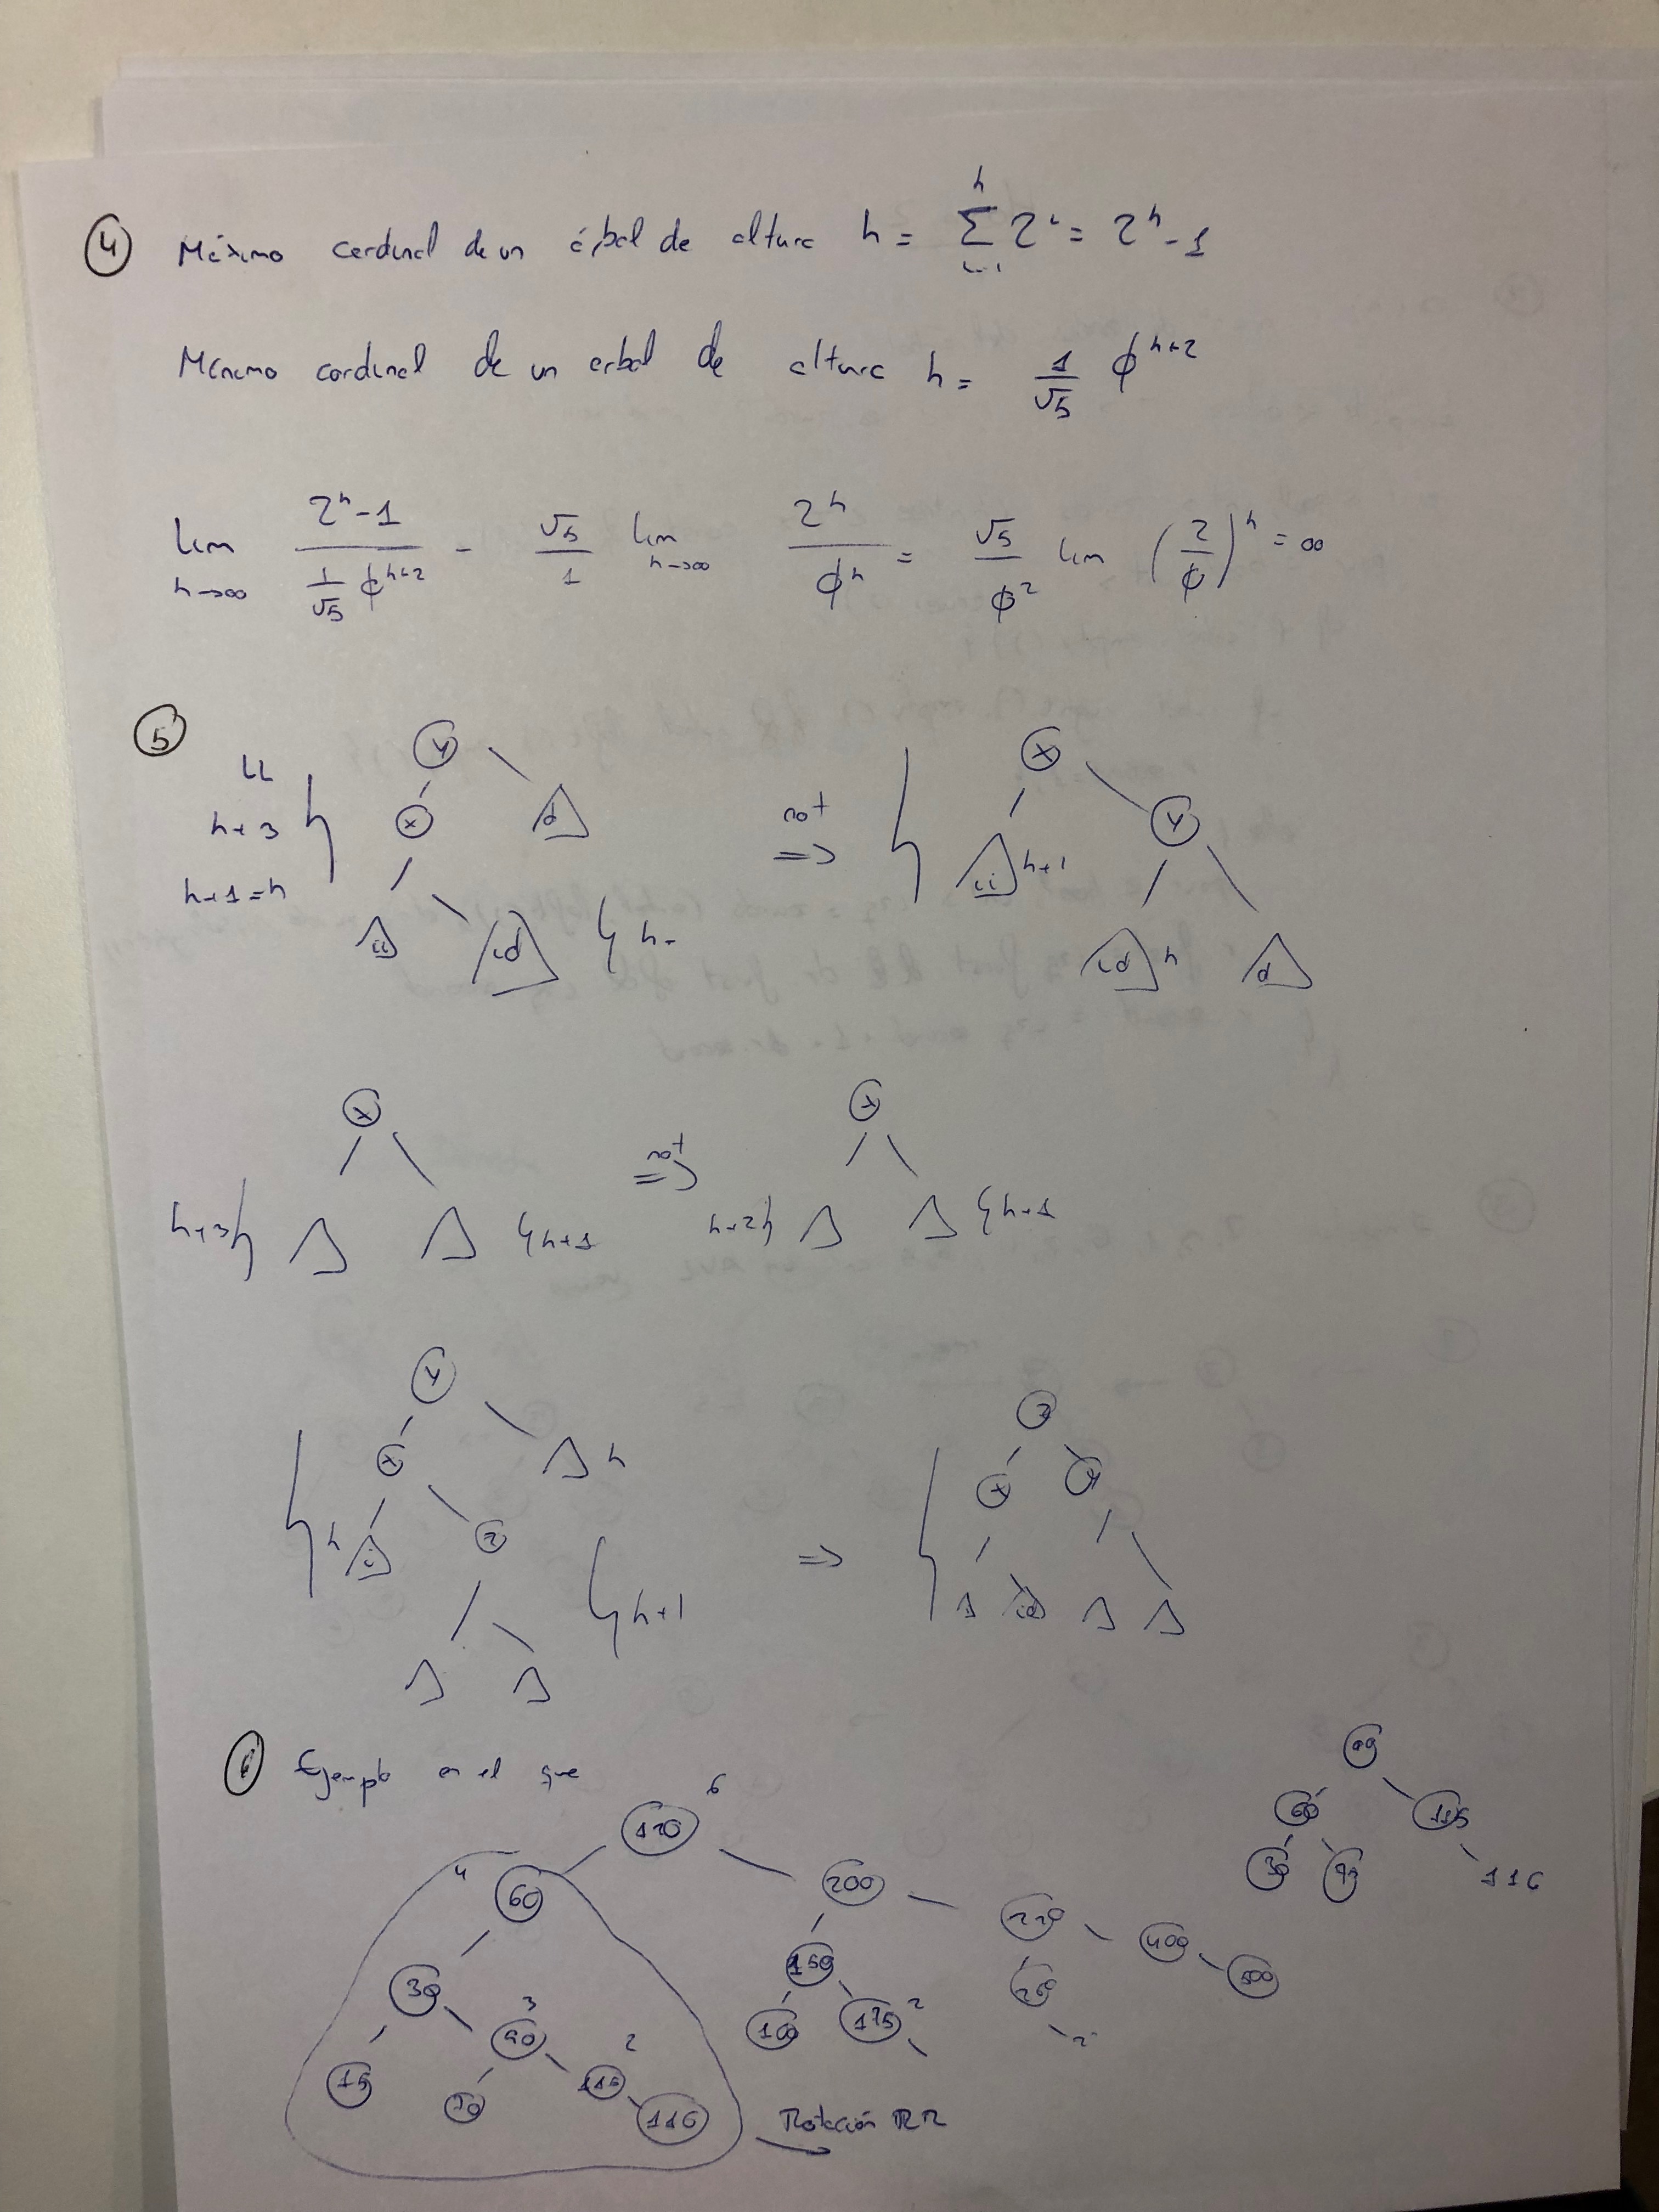 ④ Máximo cardinal de un árbol de altura h = Σ_{i=1}^{h} 2^i = 2^h - 1
Mínimo cardinal de un arbol de altura h = 1/√5 φ^{h+2}
lim_{h→∞} (2^h - 1)/(1/√5 φ^{h+2}) - √5/1 lim_{h→∞} 2^h/φ^h = √5/φ² lim (2/φ)^h = ∞
⑤
LL
h+3
h+1=h
y
x
d
ii
id
h-
rot
=>
x
ii h+1
y
id h
d
x
h+3
h+1
rot
=>
x
h+2
h+1
y
x
h
h
i
z
h+1
=>
z
x
y
id
⑥ Ejemplo en el que
120 6
4 60
200
30
150
220
400
500
15
90 3
100
175 2
50
115 2
116
Rotación RR
60
115
30
116